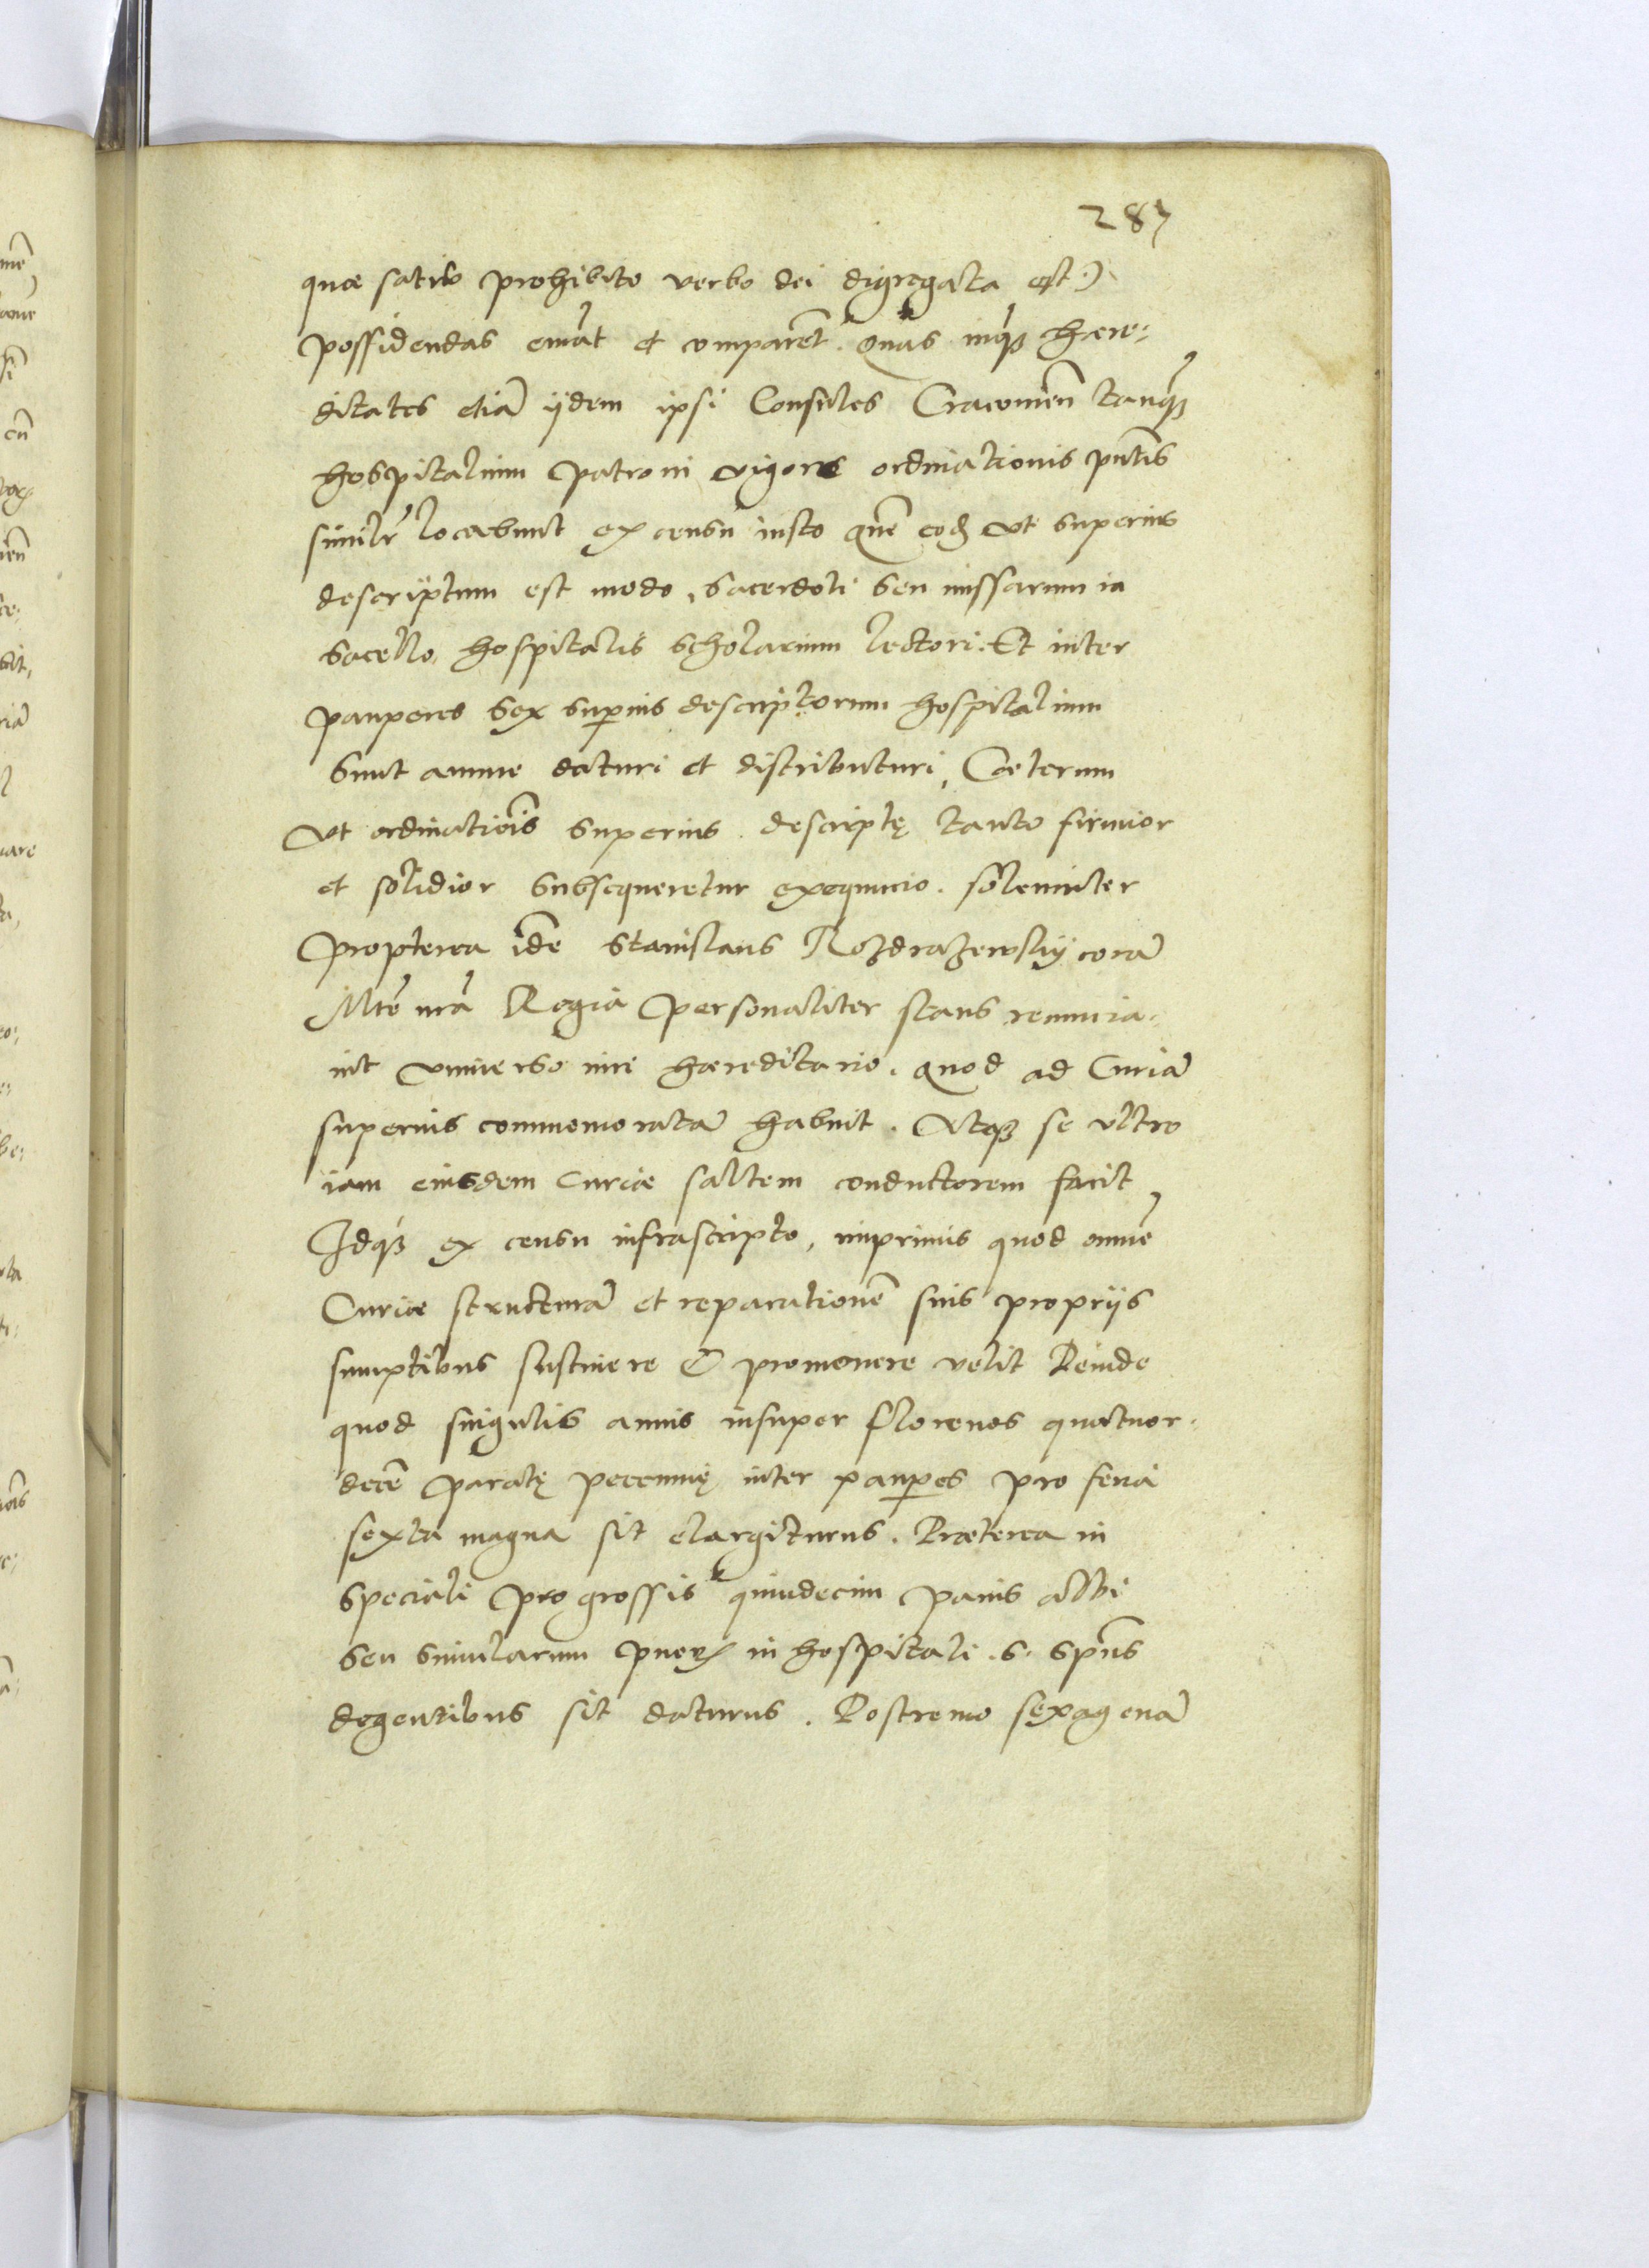 287
quæ satilo prohibito verbo dei digregata est.)
possidendas emāt et comparēt. Quas inq₃ hære-
ditates etiā ijdem ipsi Consules Cracouieñ tanq₃
hospitalium patroni vigore ordinationis pñtis
similr̃ locabunt ex censu iusto quē eod̃ vt superius
descriptum est modo, sacerdoti seu missarum in
sacello hospitalis scholarium lectori. Et inter
pauperes sex suꝑius descriptorum hospitalium
sunt annue daturi et distributuri, Cæterum
Vt ordinatiōis superius descriptę tanto firmior
et solidior subsequeretur exequucio. solenniter
propterea idē Stanislaus Rozdrazewskij corā
Mtē nrā Regia personaliter stans renuncia-
uit vniuerso iure hæreditario, quod ad Curiā
superius commemoratā habuit. Atq₃ se vltro
iam eiusdem Curiæ saltem conductorem facit
Idq₃ ex censu infrascripto, imprimis quod omnē
Curiæ structurā et reparationē suis proprijs
sumptibus sustinere & promouere velit Deinde
quod singulis annis insuper florenos quatuor-
decē paratę pecunię inter pauꝑes pro feria
sexta magna sit elargiturus. Præterea in
speciali pro grossis quindecim panis albi
seu similarum pueroꝝ in hospitali .S. Spũs
degentibus sit daturus. Postremo sexagenā